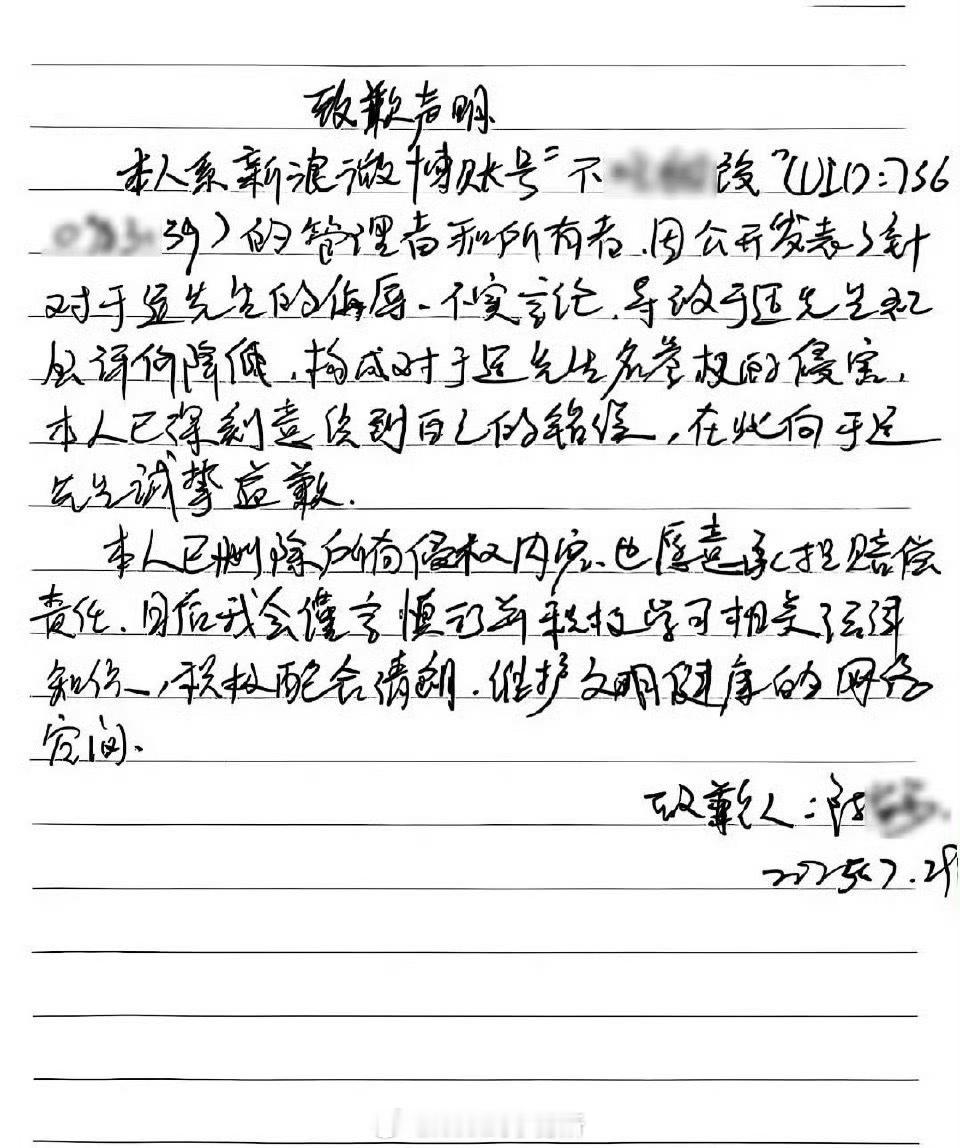 致歉声明
本人系新浪微博账号"不改"(UID:756
39)的管理者和所有者,因公开发表了针
对于适先生的侮辱、不实言论,导致于适先生社
会评价降低,构成对于适先生名誉权的侵害,
本人已深刻意识到自己的错误,在此向于适
先生诚挚致歉.
本人已删除所有侵权内容,也愿意承担赔偿
责任,日后我会谨言慎行并积极学习相关法律
知识,积极配合清朗,维护文明健康的网络
空间.
致歉人:陈
2025.7.29